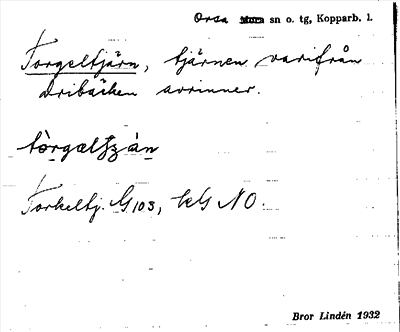 Orsa sn o. tg, Kopparb. l.
Torgeltjärn, tjärnen varifrån
Dribäcken avrinner.
Torkeltj. G 103, kG NO.
Bror Lindén 1932